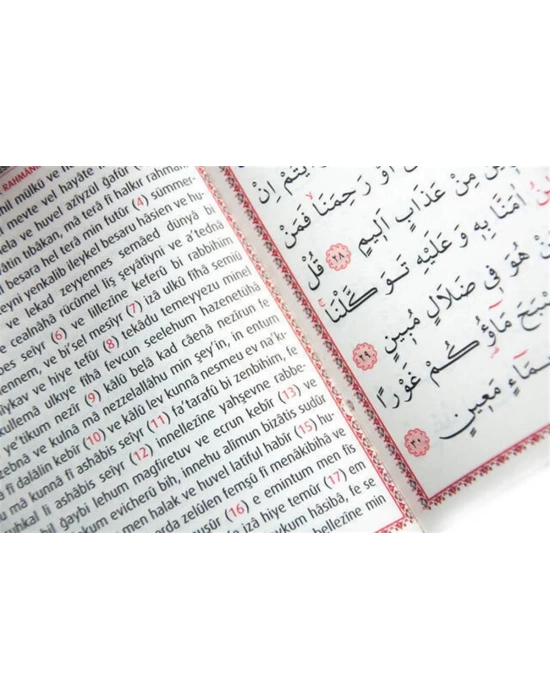 RAHMAN
hil mülkü ve
meyte vel hayâte
ela ve huvel azîyzül gafûr
âtin tıbâkan, mâ terâ fî halkır rahmân
l besara hel terâ min futûr (4) sümmer-
eyni yenkalib ileykel besaru hâsien ve hu-
ve lekad zeyyennes semâed dünyâ bi
e cealnâhâ rücûmel liş şeyâtîyni ve a'tednâ
bes seîyr (6) ve lillezîne keferû bi rabbihim
ennem, ve bi'sel mesîyr (7) izâ ulkû fîhâ semiû
hîykav ve hiye tefûr (8) tekâdu temeyyezu minel
küllemâ ulkıye fîhâ fevcun seelehum hazenetühâ
e'tikum nezîr (9) kâlû belâ kad câenâ nezîrun fe
zebnâ ve kulnâ mâ nezzelallâhu min şey'in, in entum
â fî dalâlin kebîr (10) ve kâlû lev kunnâ nesmeu ev na'k
u mâ kunnâ fî ashâbis seîyr (11) fa'tarafû bi zenbihim, fe
uhkal li ashâbis seîyr (12) innellezîne yahşevne rabbe-
bil ğaybi lehum mağfiretuv ve ecrun kebîr (13) ve
kum evicherû bih, innehu alîmun bizâtis sudûr
men halak ve huvel latîful habîr (15) hu-
arda zelûlen femşû fî menâkibihâ ve
uşûr (16) e emintum men fis
e izâ hiye temûr (17) em
aykum hâsibâ, fe se
bellezîne min
اِنْ
اَوْ رَحِمَنَاۙ فَمَنْ
مِنْ عَذَابٍ اَلٖيمٍ ٢٨ قُلْ
اٰمَنَّا بِهٖ وَعَلَيْهِ تَوَكَّلْنَاۚ
هُوَ فٖي ضَلَالٍ مُبٖينٍ ٢٩
مَٓاؤُ۬كُمْ غَوْرًا
مَعٖينٍ ٣٠